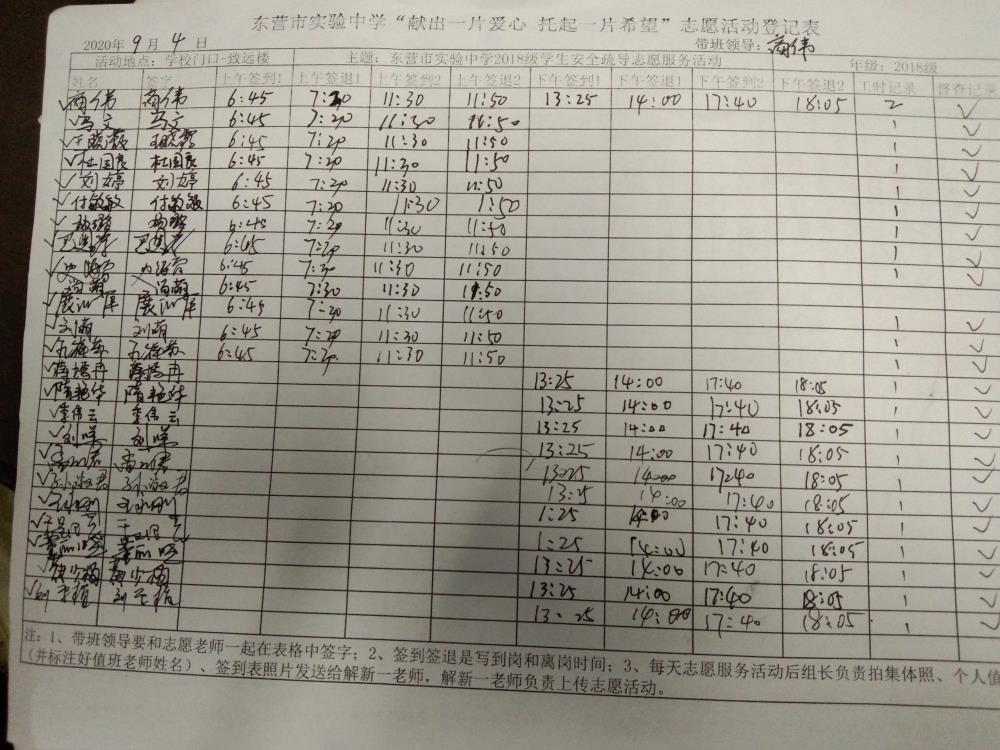 东营市实验中学“献出一片爱心 托起一片希望”志愿活动登记表
2020年 9 月 4 日 带班领导: 商伟
活动地点: 学校门口-致远楼 主题: 东营市实验中学2018级学生安全疏导志愿服务活动 年级: 2018级
姓名 签字 上午签到1 上午签退1 上午签到2 上午签退2 下午签到1 下午签退1 下午签到2 下午签退2 工时记录 督查记录
✓商伟 商伟 6:45 7:20 11:30 11:50 13:25 14:00 17:40 18:05 2 ✓
✓冯文 冯文 6:45 7:20 11:30 11:50 1 ✓
6:45 7:20 11:30 11:50 1 ✓
✓杜国良 杜国良 6:45 7:20 11:30 11:50 1 ✓
✓刘婷 刘婷 6:45 7:20 11:30 11:50 1 ✓
✓付敏敏 付敏敏 6:45 7:20 11:30 11:50 1 ✓
6:45 7:20 11:30 11:50 1 ✓
6:45 7:20 11:30 11:50 1 ✓
6:45 7:20 11:30 11:50 1 ✓
尚萌 尚萌 6:45 7:30 11:30 11:50 ✓
6:45 7:20 11:30 11:50 1 ✓
✓刘萌 刘萌 6:45 7:20 11:30 11:50 1 ✓
6:45 7:20 11:30 11:50 1 ✓
13:25 14:00 17:40 18:05 1 ✓
✓隋艳华 隋艳华 13:25 14:00 17:40 18:05 1 ✓
✓李伟云 李伟云 13:25 14:00 17:40 18:05 1 ✓
13:25 14:00 17:40 18:05 1 ✓
13:25 14:00 17:40 18:05 1 ✓
13:25 14:00 17:40 18:05 1 ✓
1:25 14:00 17:40 18:05 1 ✓
1:25 14:00 17:40 18:05 1 ✓
13:25 14:00 17:40 18:05 1 ✓
13:25 14:00 17:40 18:05 1 ✓
13:25 14:00 17:40 18:05 1 ✓
注: 1、带班领导要和志愿老师一起在表格中签字; 2、签到签退是写到岗和离岗时间; 3、每天志愿服务活动后组长负责拍集体照、个人值
(并标注好值班老师姓名)、签到表照片发送给解新一老师, 解新一老师负责上传志愿活动。